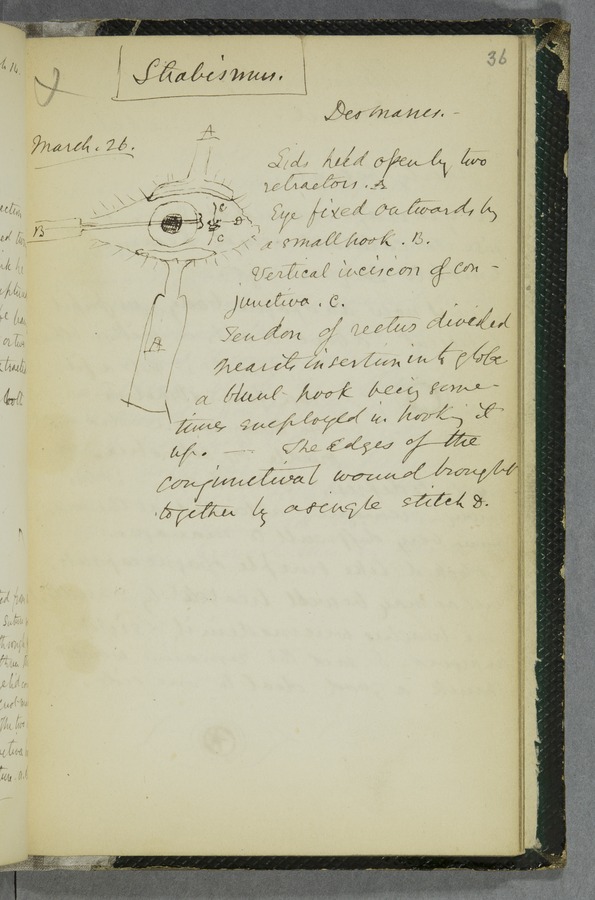 36
Strabismus.
Desmarres. -
March. 26.
A
Lids held open by two
retractors. A
Eye fixed outwards by
a small hook. B.
Vertical incision of con-
junctiva. C.
Tendon of rectus divided
near its insertion into globe
a blunt hook being some-
times employed in hooking it
up. — The edges of the
conjunctival wound brought
together by a single stitch D.
B
C
D
C
A